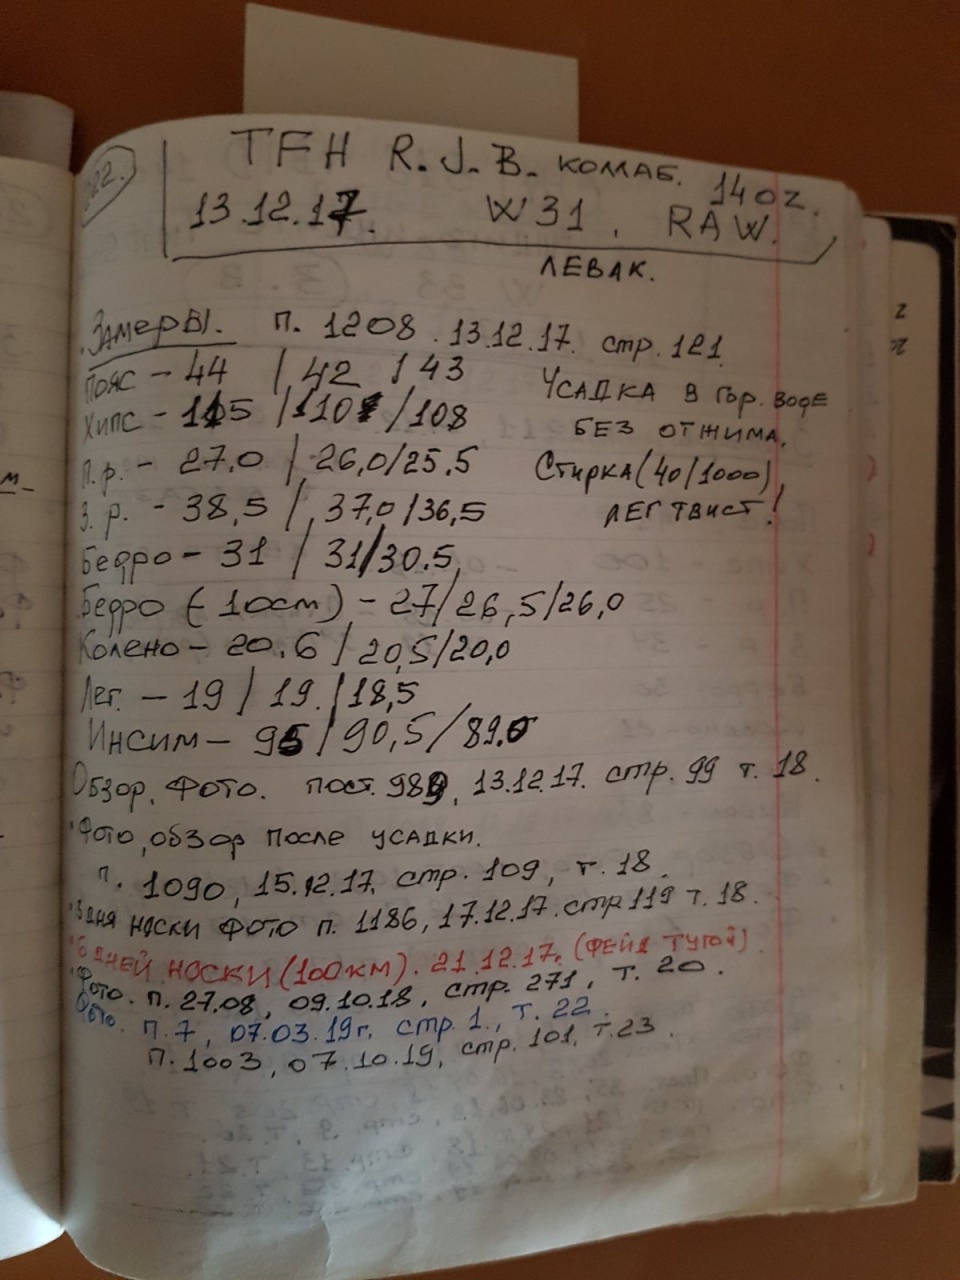 TFH R.J.B. КОМАБ. 14oz.
13.12.17. W31. RAW.
ЛЕВАК.
Замеры. П. 1208. 13.12.17. стр. 121
Пояс - 44 / 42 / 43
Усадка в гор. воде
Хипс - 115 / 110 / 108
БЕЗ ОТЖИМА.
П.р. - 27.0 / 26,0/25.5
Стирка (40/1000)
З.р. - 38,5 / 37,0/36,5
ЛЕГ ТВИСТ!
Бедро - 31 / 31/30.5
Бедро (-10см) - 27/26,5/26,0
Колено - 20.6 / 20,5/20,0
Лег. - 19 / 19. / 18,5
Инсим - 95 / 90,5 / 89.0
Обзор, фото. пост. 989, 13.12.17. стр. 99 т. 18.
Фото, обзор после усадки.
п. 1090, 15.12.17. стр. 109, т. 18.
3 дня носки фото п. 1186, 17.12.17. стр 119 т. 18.
6 дней носки (100км). 21.12.17. (ФЕЙД ТУГОЙ).
Фото. п. 27.08, 09.10.18, стр. 271, т. 20.
Фото. п. 7, 07.03.19г. стр. 1., т. 22.
п. 1003, 07.10.19, стр. 101, т. 23.